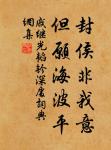 封侯非我意
但願海波平
戚继光韬钤深处词典
網集